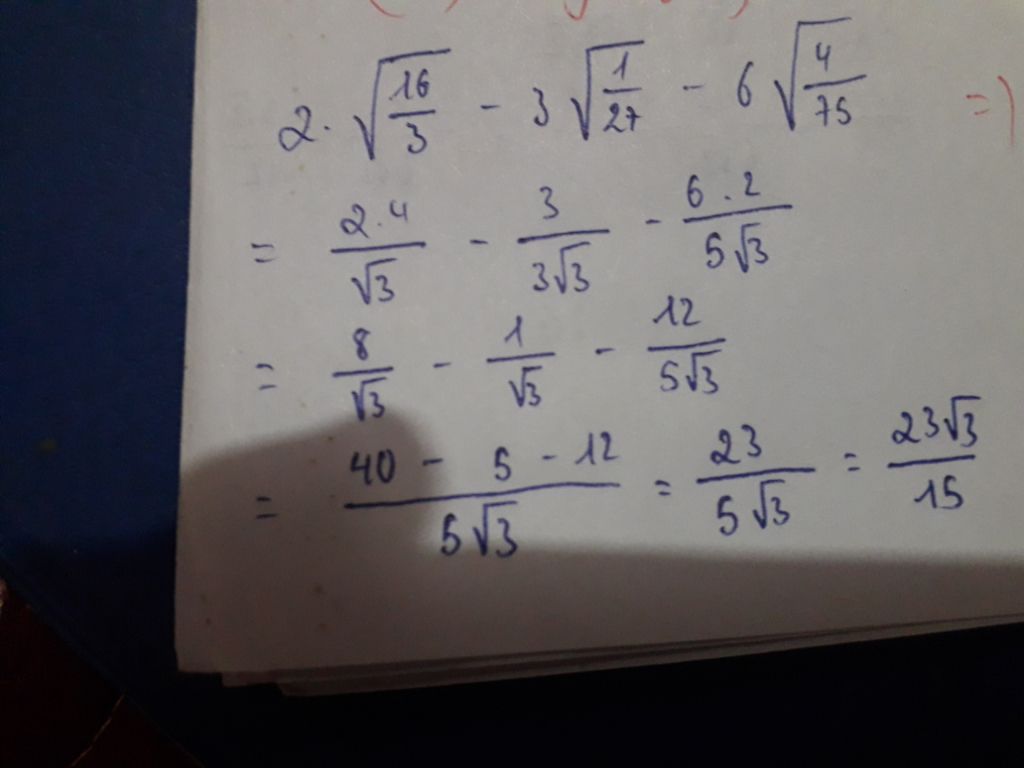 2. √(16/3) - 3 √(1/27) - 6 √(4/75) =)
= (2.4)/√3 - 3/(3√3) - (6.2)/(5√3)
= 8/√3 - 1/√3 - 12/(5√3)
= (40 - 5 - 12)/(5√3) = 23/(5√3) = (23√3)/15